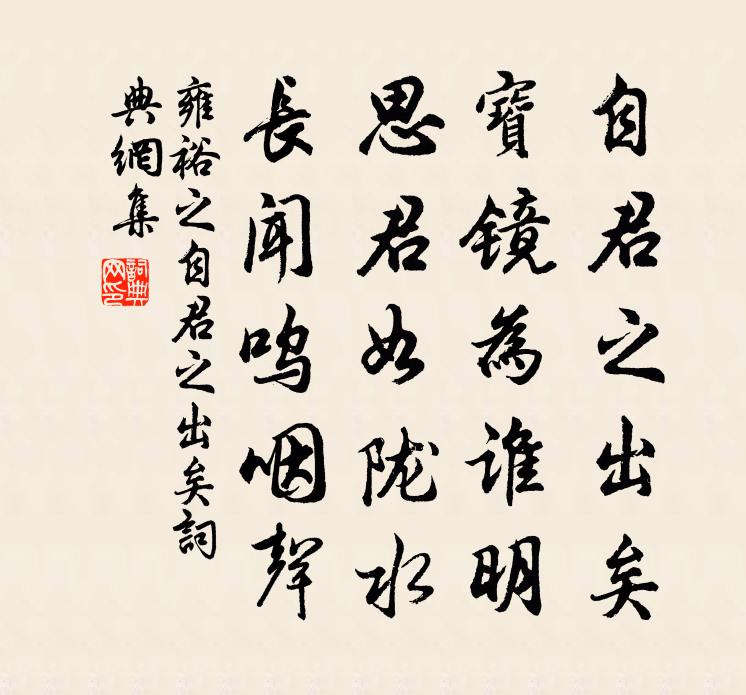 自君之出矣
寶鏡為谁明
思君如陇水
長闻呜咽聲
雍裕之自君之出矣詞
典網集
詞典
网印